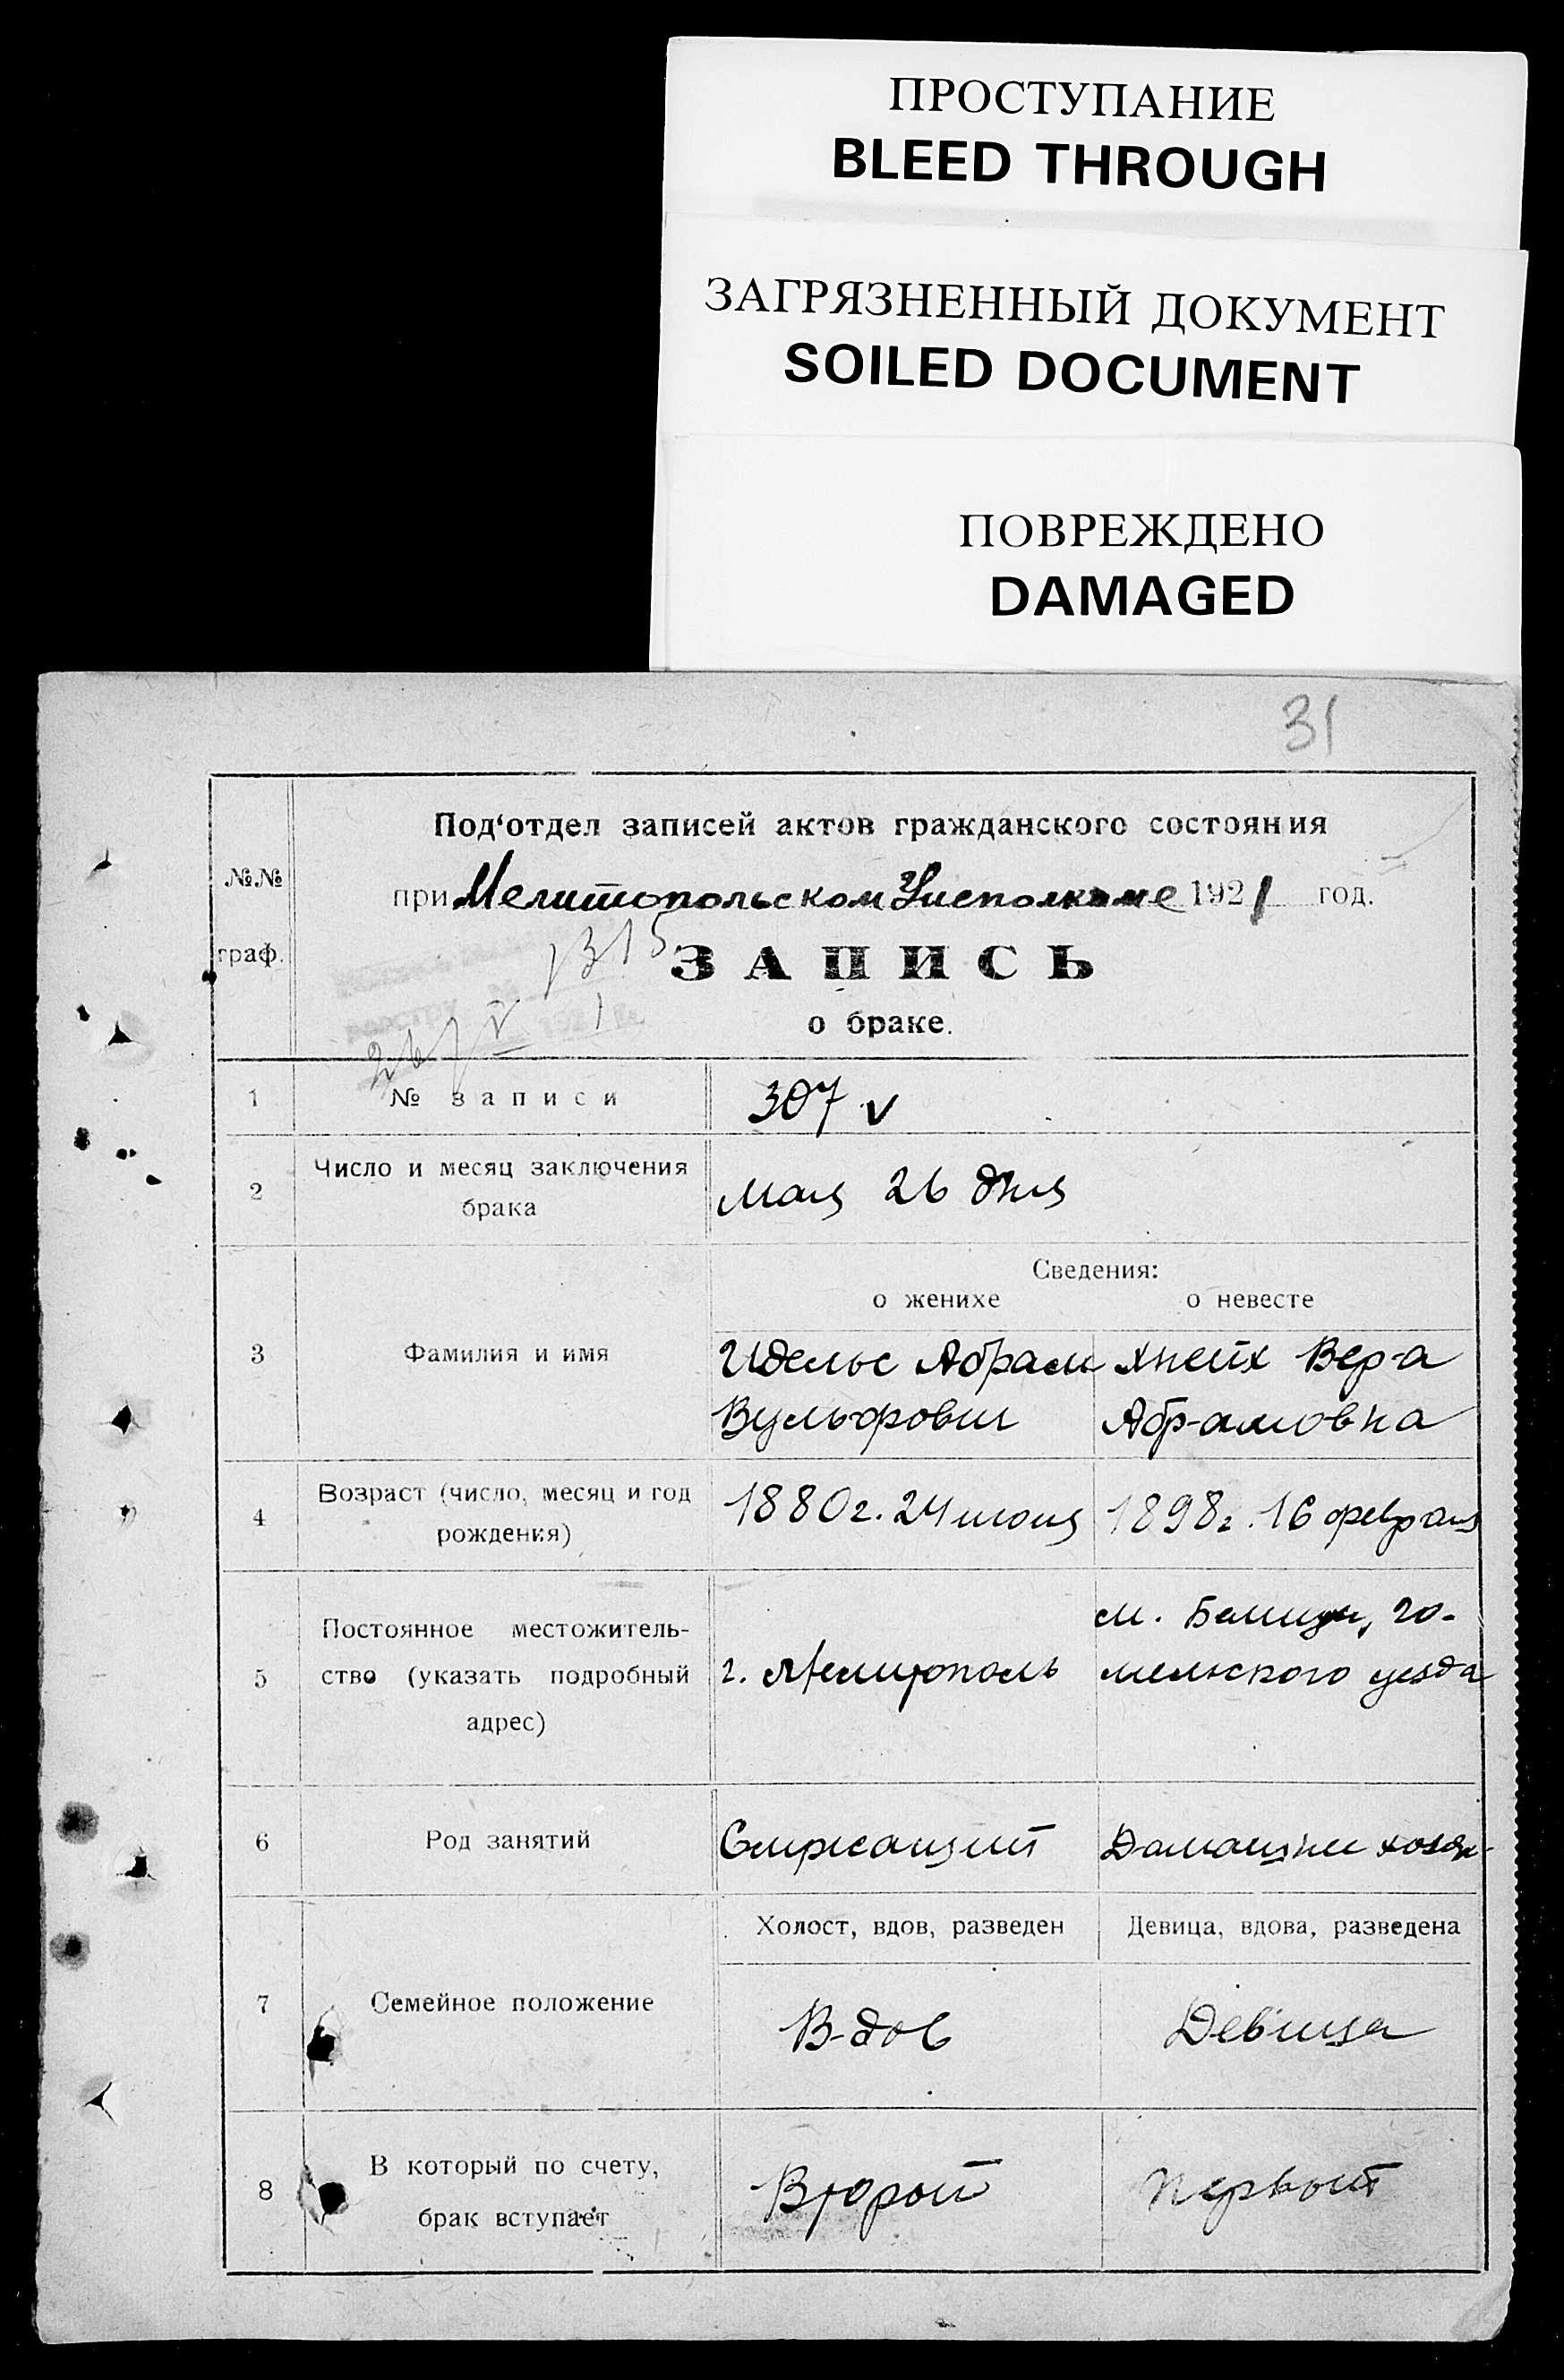 ПРОСТУПАНИЕ
BLEED THROUGH
ЗАГРЯЗНЕННЫЙ ДОКУМЕНТ
SOILED DOCUMENT
ПОВРЕЖДЕНО
DAMAGED
31
№№ граф.
Под‘отдел записей актов гражданского состояния
при Мелитопольском Уисполкоме 1921 год.
1315
ЗАПИСЬ
о браке.
26/V 1
1 № записи 307 v
2 Число и месяц заключения брака
мая 26 дня
Сведения:
о женихе о невесте
3 Фамилия и имя
Идельс Абрам
Вульфович
Хнейх Вера
Абрамовна
4 Возраст (число, месяц и год рождения)
1880г. 24 июня
1898г. 16 февраля
5 Постоянное местожитель-
ство (указать подробный
адрес)
г. Мелитополь
м. Го-
мельского уезда
6 Род занятий
Домашнее хозяй-
7 Семейное положение
Холост, вдов, разведен
Девица, вдова, разведена
Вдов
Девица
8 В который по счету,
брак вступает
Второй
Первый